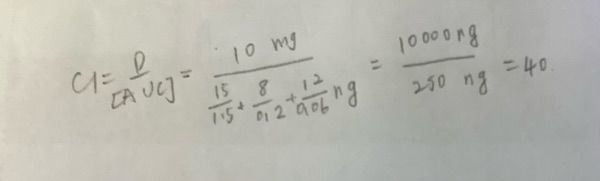 Cl = D/[AUC] = 10 mg/(15/1.5 + 8/0.2 + 12/0.06 ng) = 10000ng/250 ng = 40.